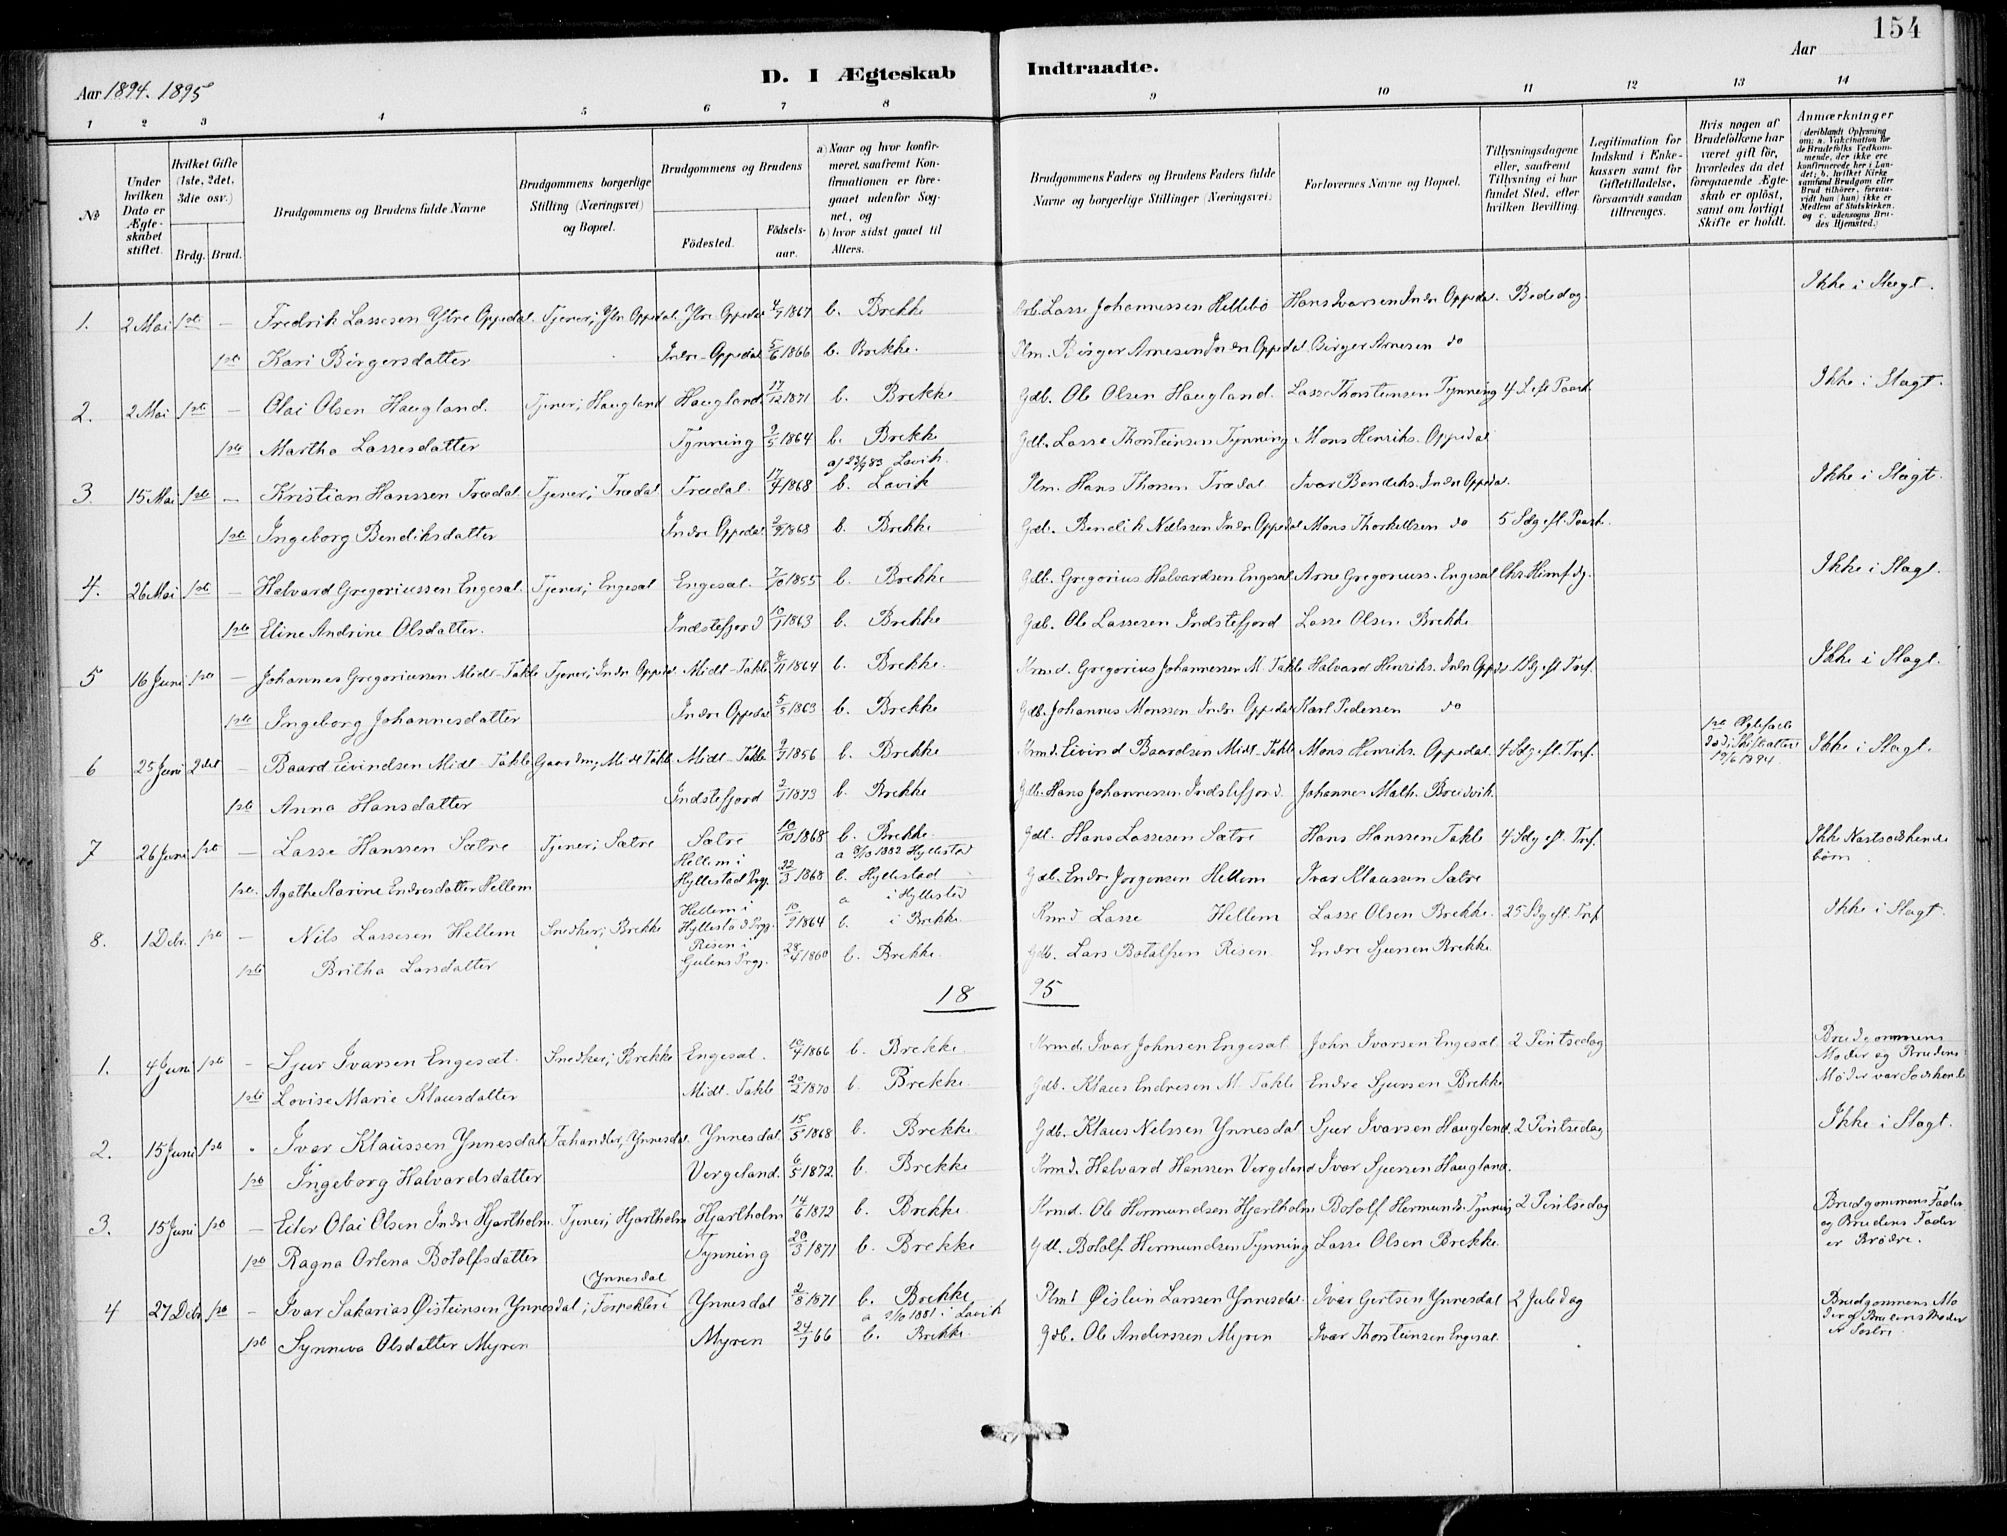 154
Aar 1894. 1895
D. I Ægteskab Indtraadte.
Aar
1 2 3 4 5 6 7 8 9 10 11 12 13 14
No
Under hvilken Dato er Ægte-skabet stiftet.
Hvilket Gifte (1ste, 2det, 3die osv.)
Brdg. Brud.
Brudgommens og Brudens fulde Navne
Brudgommens borgerlige Stilling (Næringsvei) og Bopæl.
Brudgommens og Brudens
Födested.
Födsels-aar.
a) Naar og hvor konfir-meret, saafremt Kon-firmationen er fore-gaaet udenfor Sog-net, og
b) hvor sidst gaaet til Alters.
Brudgommens Faders og Brudens Faders fulde Navne og borgerlige Stillinger (Næringsvei)
Forlovernes Navne og Bopæl.
Tillysningsdagene eller, saafremt Tillysning ei har fundet Sted, efter hvilken Bevilling.
Legitimation for Indskud i Enke-kassen samt for Giftetilladelse, forsaavidt saadan tiltrænges.
Hvis nogen af Brudefolkene har været gift för, hvorledes da det foregaaende Ægte-skab er oplöst, samt om lovligt Skifte er holdt.
Anmærkninger (deriblandt Oplysning om: a. Vakcination for de Brudefolks Vedkom-mende, der ikke ere konfirmerede her i Lan-det; b. hvilket Kirke samfund Brudgom eller Brud tilhörer, forsaa-vidt han (hun) ikke er Medlem af Statskirken, og c. udensogns Bru-des Hjemsted.)
1. 2 Mai 1ste — Fredrik Lassesen Ytre Oppedal Tjener, Ytr. Oppedal Ytre Oppedal 4/7 1867 b. Brekke Arb. Lasse Johannessen Hellebö Hans Ivarsen Indre Oppedal Bededag Ikke i Slagt.
1ste Kari Birgersdatter Indre Oppedal 5/6 1866 b. Brekke. Plm. Birger Arnesen Indre Oppedal Birger Arnesen do
2. 2 Mai 1ste — Olai Olsen Haugland. Tjener, Haugland Haugland 17/12 1871 b. Brekke Gdb. Ole Olsen Haugland. Lasse Thorsteinsen Tynning 4 S. eft. Paask. Ikke i Slagt.
1ste Martha Lassesdatter Tynning 9/5 1864 b. Brekke Gdb. Lasse Thorsteinsen Tynning Mons Henriks. Oppedal
3 15 Mai 1ste — Kristian Hanssen Trædal Tjener, Trædal Trædal. 17/4 1868 a) 23/9 83 Lavik. b. Lavik Plm. Hans Thorsen Trædal Ivar Bendiks. Indre Oppedal Ikke i Slagt.
1ste Ingeborg Bendiksdatter Indre Oppedal 2/9 1868 b. Brekke Gdb. Bendik Nielssen Indre Oppedal Mons Thorkellsen do 5 Sdg eft. Paask.
4. 26 Mai 1ste — Halvard Gregoriussen Engesæt. Tjener, Engesæt Engesæt. 7/10 1855 b. Brekke Gdb. Gregorius Halvardsen Engesæt Arne Gregoriuss. Engesæt Chr. Himf. dg. Ikke i Slagt.
1ste Eline Andrine Olsdatter. Indstefjord 10/1 1863 b. Brekke Gdb. Ole Lassesen Indstefjord Lasse Olsen Brekke
5 16 Juni 1ste — Johannes Gregoriussen Midt-Takle Tjener, Indre Opped. Midt-Takle 8/11 1864 b. Brekke. Krmd. Gregorius Johannessen M. Takle Halvard Henriks. Indre Opped. 1 Sdg eft. Tref. Ikke i Slagt.
1ste Ingeborg Johannesdatter Indre Oppedal 5/5 1863 b. Brekke Gdb. Johannes Monssen Indre Oppedal Karl Pedersen do
6 25 Juni 2det — Baard Eivindsen Midt-Takle Gaardm, Midt Takle Midt-Takle 9/7 1856 b. Brekke Krmd. Eivind Baardsen Midt. Takle Mons Henriks. Oppedal 4 Sdg eft. Tref. 1ste Ægtefælle död; Skifteattest 19/6 1894. Ikke i Slagt.
1ste Anna Hansdatter Indstefjord 2/1 1873 b. Brekke Gdb. Hans Johannessen Indstefjord. Johannes Math. Breidvik.
7 26 Juni 1ste — Lasse Hanssen Sætre Tjener, Sætre Sætre 10/10 1868 b. Brekke. Gdb. Hans Lassesen Sætre Hans Hanssen Takle 4 Sdg eft. Tref. Ikke Næstsødskende börn.
1ste. Agathe Karine Endresdatter Hellem Hellem i Hyllestad Prgj. 22/3 1868 a 8/10 1882 Hyllestad b. Hyllestad Gdb. Endre Jörgensen Hellem Ivar Klaussen Sætre
8. 1 Debr. 1ste — Nils Lassesen Hellem Snedker, Brekke Hellem i Hyllestad Prgj. 10/9 1864 a i Hyllestad b. i Brekke Krmd Lasse Hellem Lasse Olsen Brekke. 25 Sdg eft. Tref Ikke i Slagt.
1ste Britha Larsdatter Risen i Gulens Prgj. 28/4 1860 b. Brekke. Gdb. Lars Botolfsen Risen Endre Sjursen Brekke
18 95
1. 4 Juni 1ste — Sjur Ivarsen Engesæt. Snedker, Brekke Engesæt. 10/4 1866 b. Brekke. Krmd. Ivar Johnsen Engesæt John Ivarsen Engesæt 2 Pintsedag Brudgommens Moder og Brudens Moder var Sødskende
1ste Lovise Marie Klausdatter Midt-Takle 20/2 1870 b. Brekke. Gdb. Klaus Endresen M. Takle Endre Sjursen Brekke
2. 15 Juni 1ste . Ivar Klaussen Ynnesdal Fæhandler, Ynnesdal Ynnesdal 15/5 1868 b. Brekke. Gdb. Klaus Nilssen Ynnesdal Sjur Ivarsen Haugland. 2 Pintsedag Ikke i Slagt.
1ste Ingeborg Halvardsdatter Vergeland. 6/5 1872. b. Brekke Krmd. Halvard Hanssen Vergeland Ivar Sjursen Haugland.
3. 15 Juni 1ste — Eiler Olai Olsen Indre Hjartholm Tjener, Hjartholm Hjartholm 14/6 1872 b. Brekke. Krmd. Ole Hermundsen Hjartholm Botolf Hermunds. Tynning 2 Pintsedag Brudgommens Fader og Brudens Fader er Brödre.
1ste Ragna Orlena Botolfsdatter Tynning 20/3 1871 b. Brekke Gdb. Botolf Hermundsen Tynning Lasse Olsen Brekke.
4 27 Debr 1ste — Ivar Sakarias Øisteinsen Ynnesdal, (Ynnesdal Ynnesdal 2/8 1871 b. Brekke Plmd Øistein Larssen Ynnesdal. Ivar Gertsen Ynnesdal 2 Juledag Brudgommens Moder og Brudens Moder er Søstre.
1ste Synneva Olsdatter Myren Myren 24/7 66 a 2/10 1881 i Lavik b. Brekke. Gdb. Ole Anderssen Myren Ivar Thorsteinsen Engesæt.